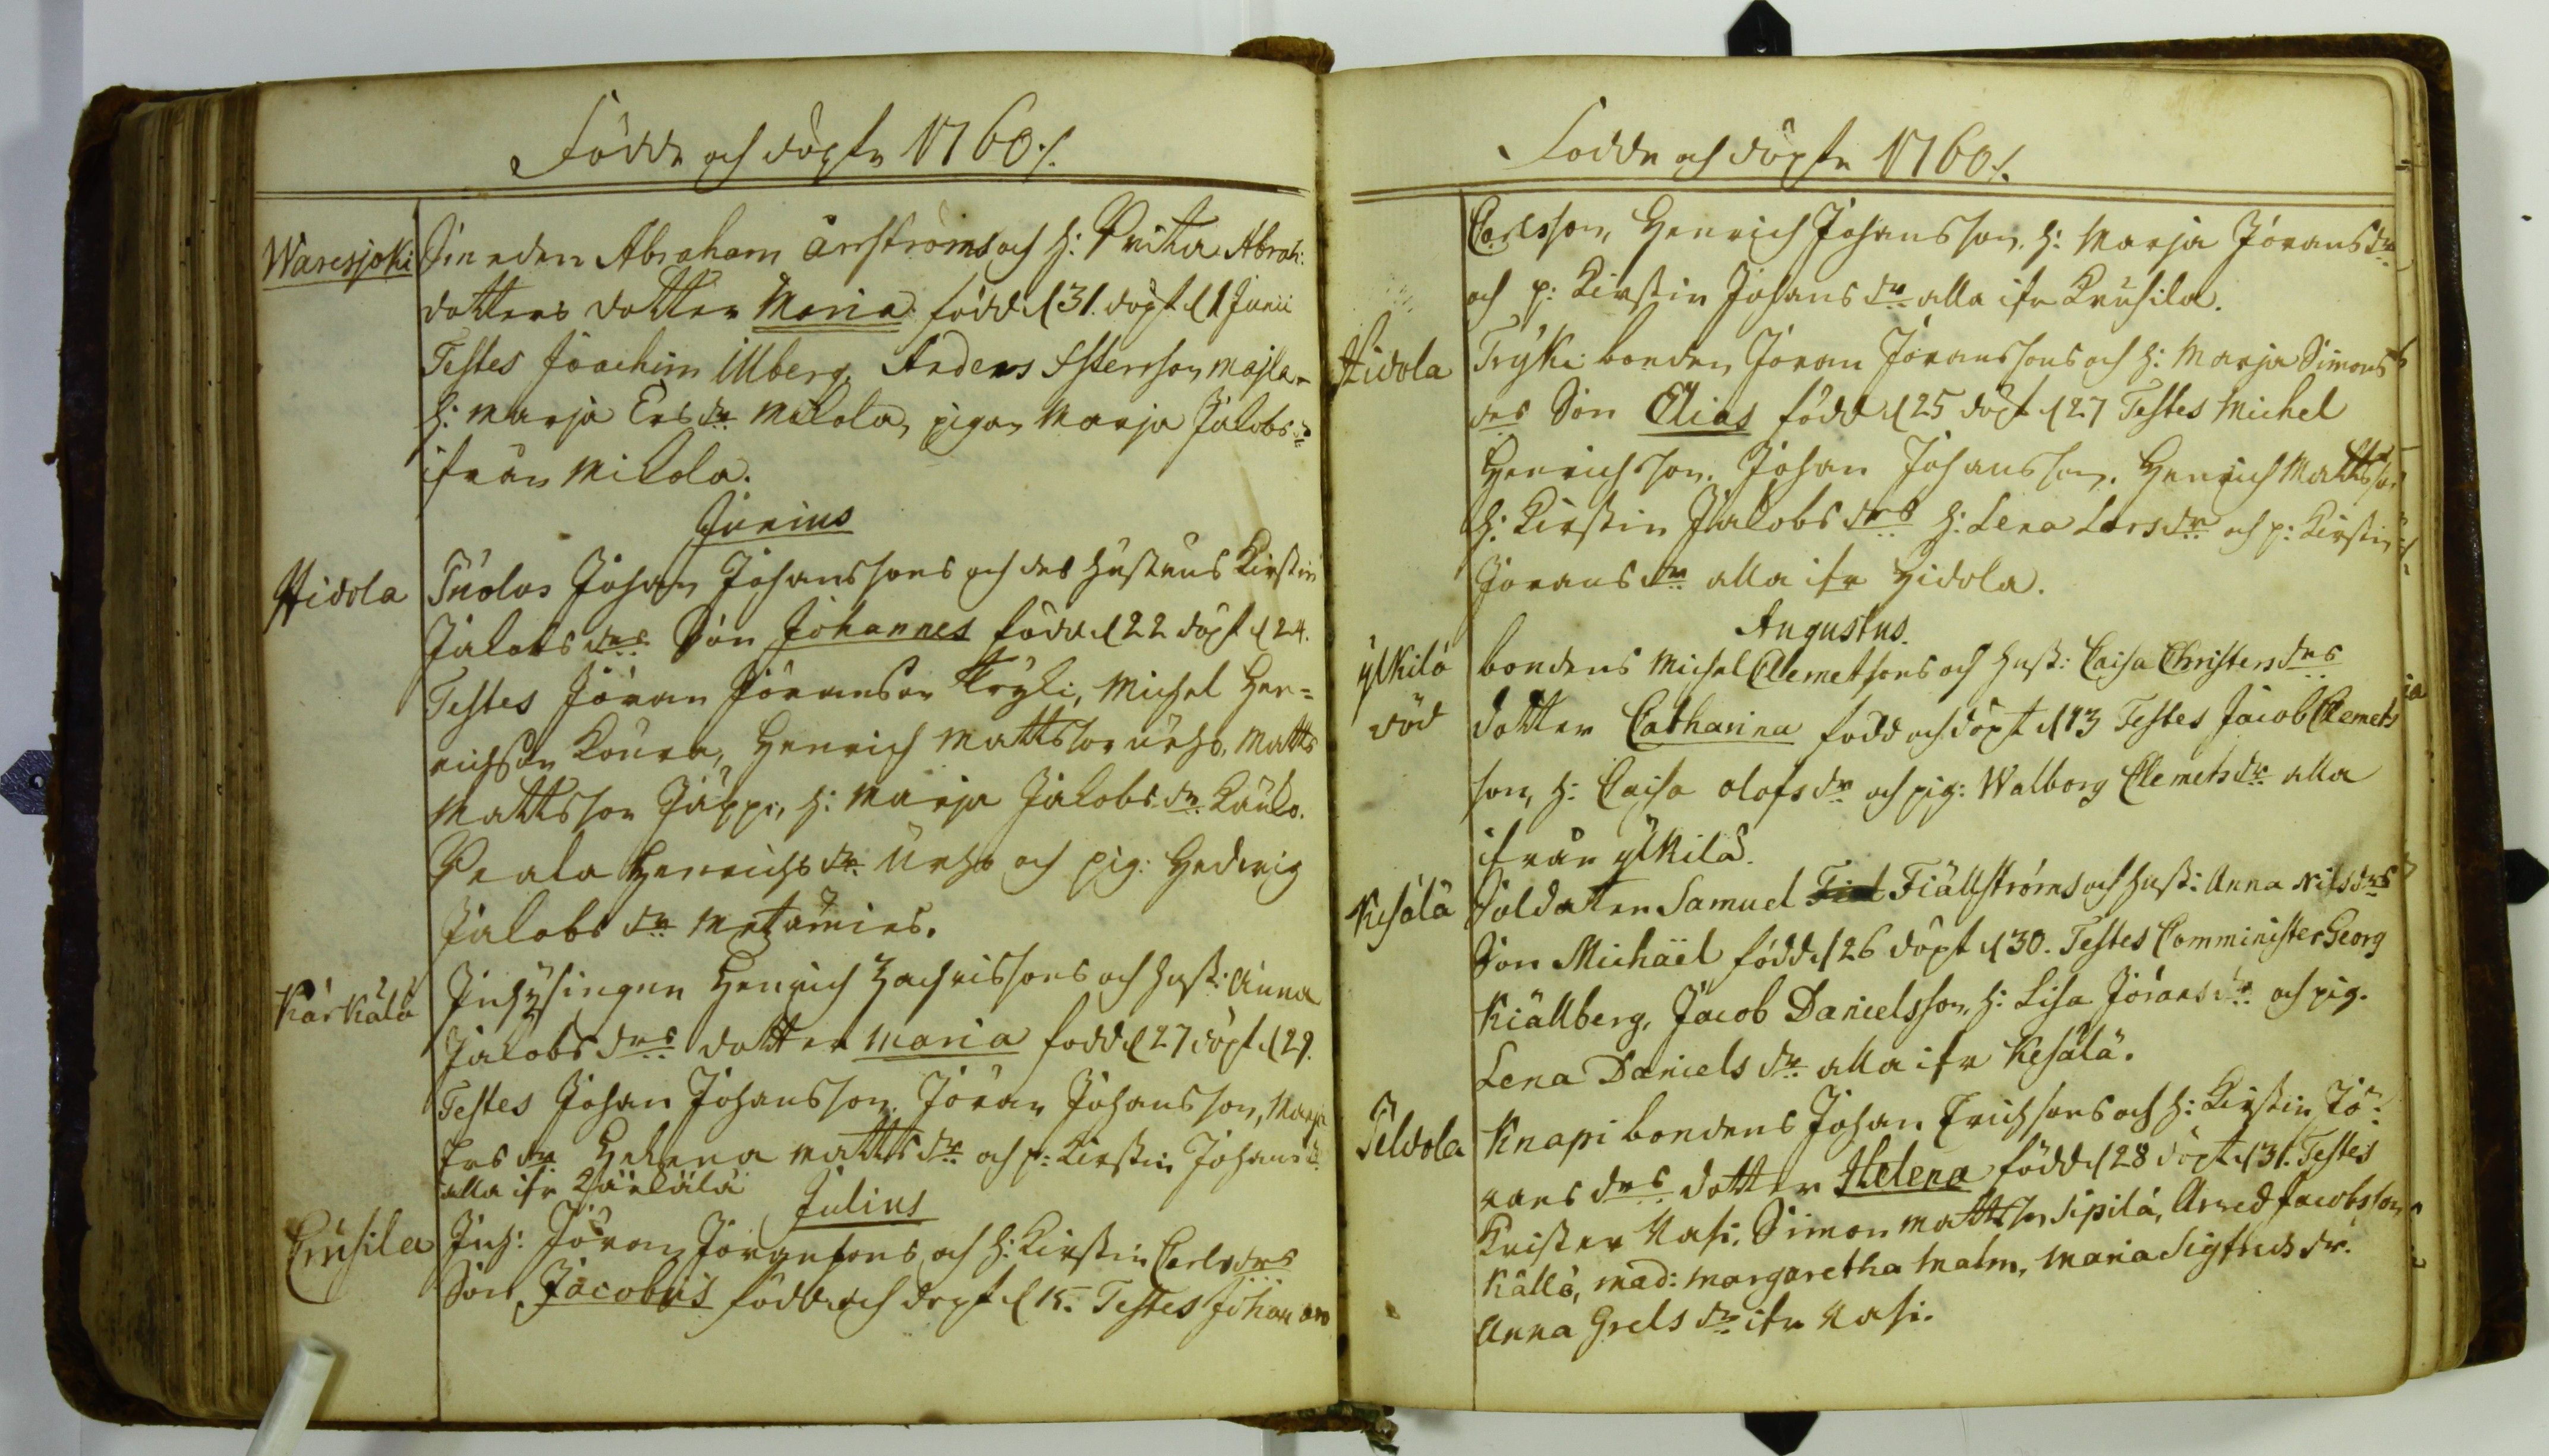 Födde och döpte 1760 ./.
Waresjoki
Smeden Abraham Arnströms och h: Brita Abrah:
dotters dotter Maria född d 31. döpt d 1 Junii
Testes Joachim Ulberg, Anders Maj la-
h: Marja Ersdr Mikola, pigan Marja Jakobsdr
ifrån Mikola.
Junius
Hidola
Johan Johanssons och des hustrus Kirstin
Jakobsdrs Son Johannes född d 22 döpt d 24.
Testes Jöran Jöransson Tryki, Michel Hen=
richson Koura, Henrich Mattsson Urho, Matts
Mattsson Jäppi, h: Marja Jakobsdr Kauko.
Beata Henrichsdr Urho och pig: Hedvig
Jakobsdr Metämies.
Kärkälä
Inhysingen Henrich Zachrissons och hust: Anna
Jakobsdrs dotter Maria född d 27 döpt d 29.
Testes Johan Johansson, Jöran Johansson, Marja
Ersdr Helena Mattsdr och p: Kirstin Johansd:
alla ifr Kärkälä
Julius
Cruhsila
Inh: Jöran Jöranssons och h: Kirstin Carlsdrs
Son Jacobus född och döpt d 15. Testes Johan
Födde och döpte 1760 ./.
Carlsson, Henrich Johansson, h: Marja Jöransdr
och p: Kirstin Johansdr alla ifr Kruhsila.
Hidola
Tryki bonden Jöran Jöranssons och h: Marja Simons
drs Son Elias född d 25 döpt d 27 Testes Michel
Henrichsson, Johan Johansson, Henrich Mattsson
h: Kirstin Jakobsdrs h: Lena Larsdr och p: Kirstin
Jöransdr alla ifr Hidola.
Augustus.
ylkilä
död
bondens Michel Clemetsons och hust: Caisa Christersdrs
dotter Catharina född och döpt d 13 Testes Jacob Clemets
son, h: Caisa Olofsdr och pig: Walborg Clemetsdr alla
ifrån ylkilä.
Kesälä
Soldaten Samuel Fiällströms och hust: Anna Nilsdrs
Son Michaël född d 26 döpt d 30. Testes Comminister Georg
Kiällberg, Jacob Danielsson, h: Lisa Jöransdr och pig.
Lena Danielsdr alla ifr Kesälä.
Peldola
Knapi bondens Johan Erichsons och h: Kirstin Jö-
ransdrs dotter Helena född d 28 döpt d 31. Testes
Krister Nasi, Simon Mattsson Sipilä, Arved Jacobsson
Källö, mad: Margaretha Malm, Maria Sigfridsdr.
Anna Grelsdr ifr Nasi.